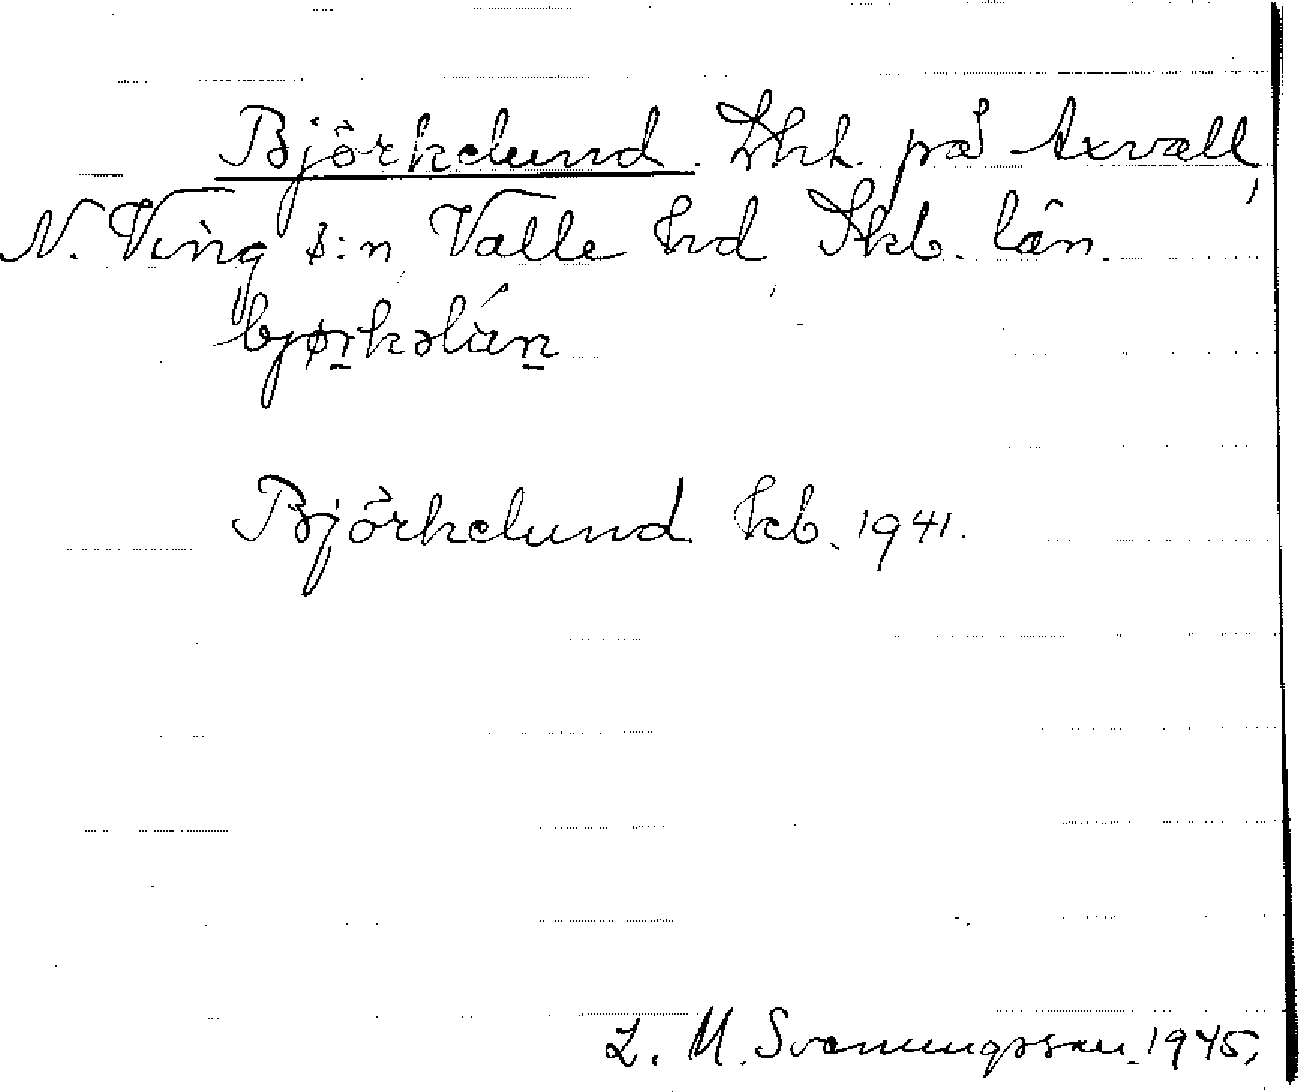 Björkelund. Lht. på Axvall,
N. Ving s:n, Valle hd, Skb. län.
bjørkəlùn
Björkelund kb. 1941.
L. M. Svenungsson. 1945.